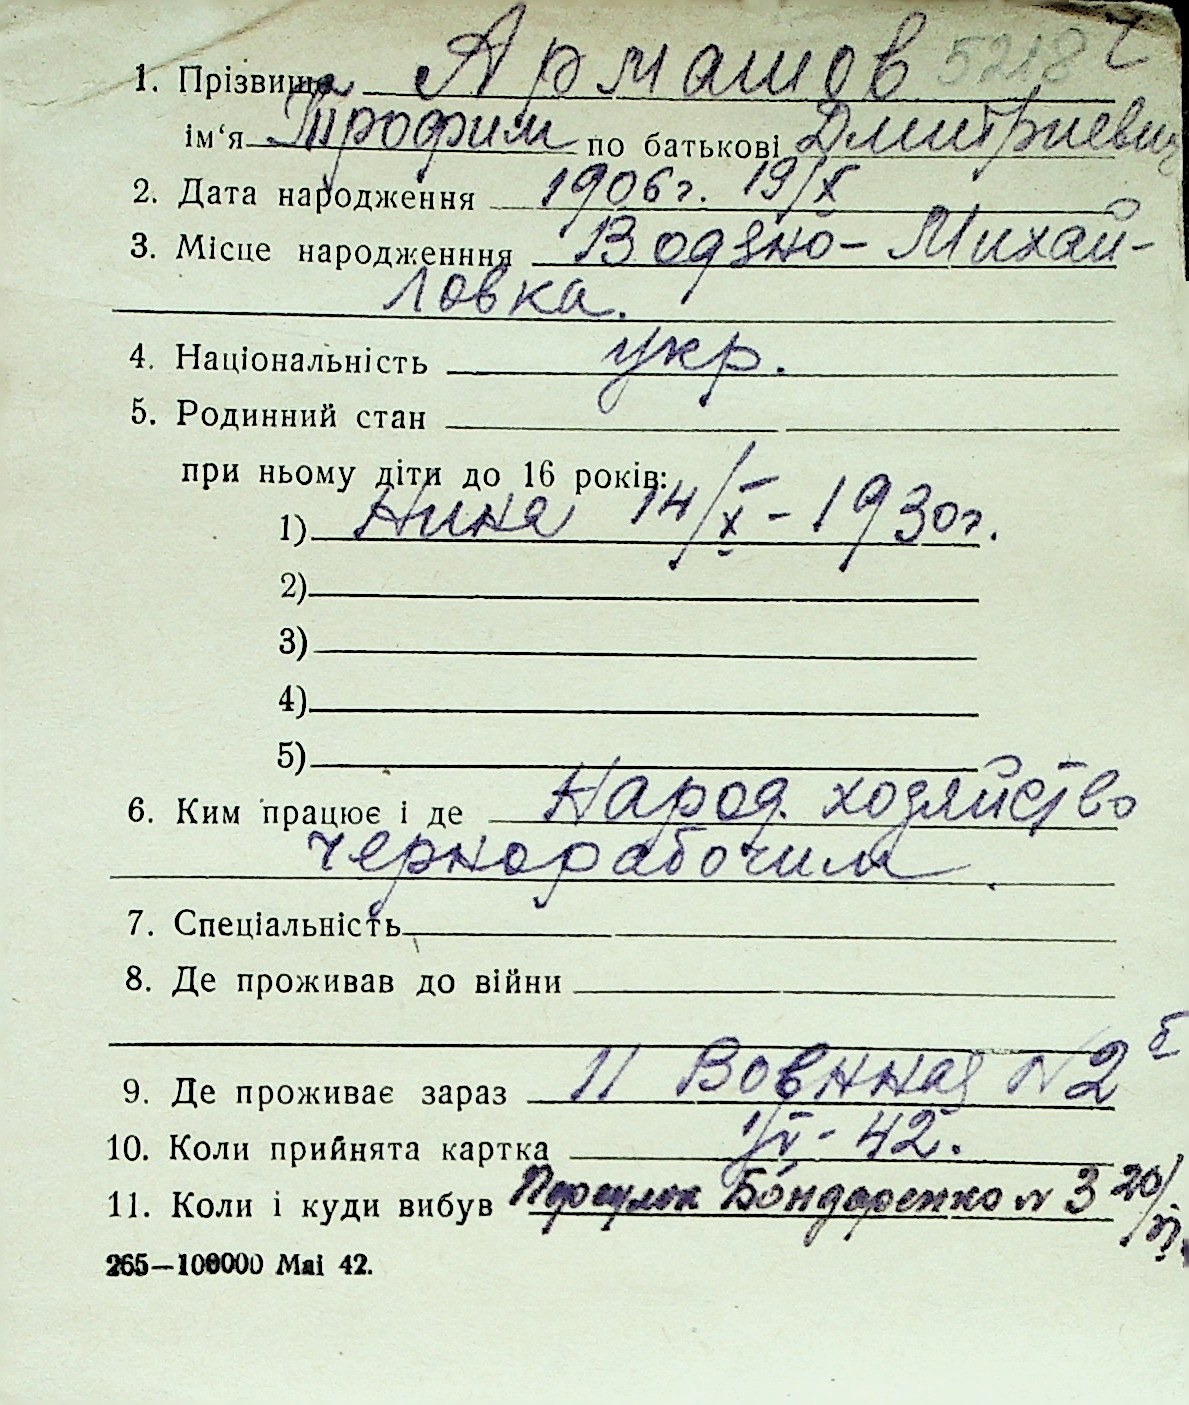 1. Прізвище Армашов 5218
ім‘я Трофим по батькові Дмитриевич
2. Дата народження 1906г. 19/X
3. Місце народженння Водяно- Михай-
ловка.
4. Національність укр.
5. Родинний стан
при ньому діти до 16 років:
1) Нина 14/X - 1930г.
2)
3)
4)
5)
6. Ким працює і де Народ. хозяйство
чернорабочим
7. Спеціальність
8. Де проживав до війни
9. Де проживає зараз 11 Воєнная N 2 б
10. Коли прийнята картка 1/VI - 42.
11. Коли і куди вибув Переулок Бондаренко N 3 20/VI
265—100000 Mai 42.